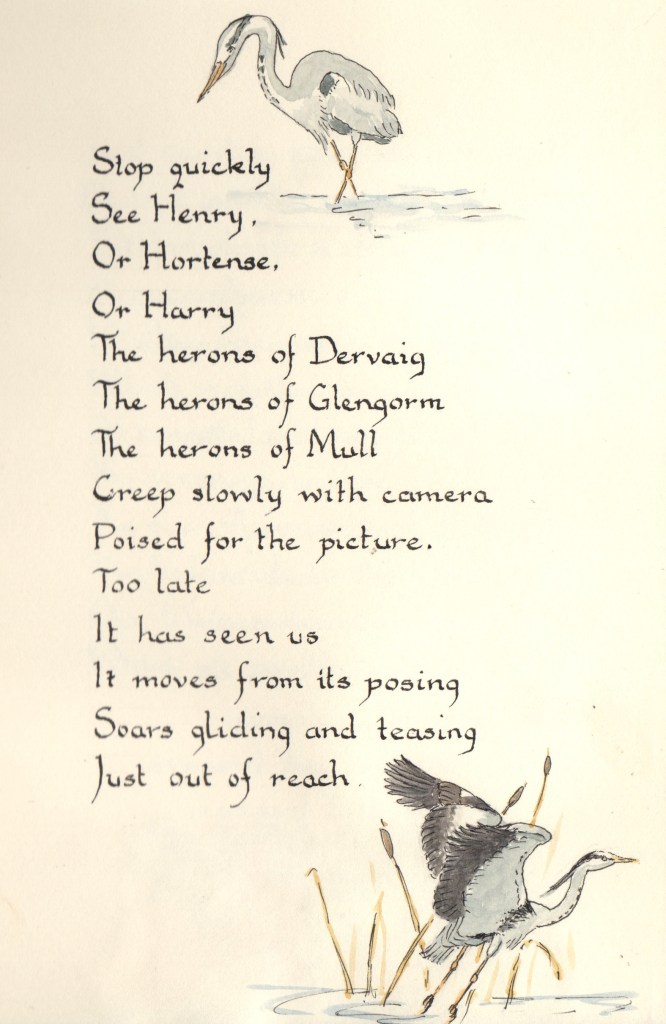 Stop quickly
See Henry,
Or Hortense,
Or Harry
The herons of Dervaig
The herons of Glengorm
The herons of Mull
Creep slowly with camera
Poised for the picture.
Too late
It has seen us
It moves from its posing
Soars gliding and teasing
Just out of reach.